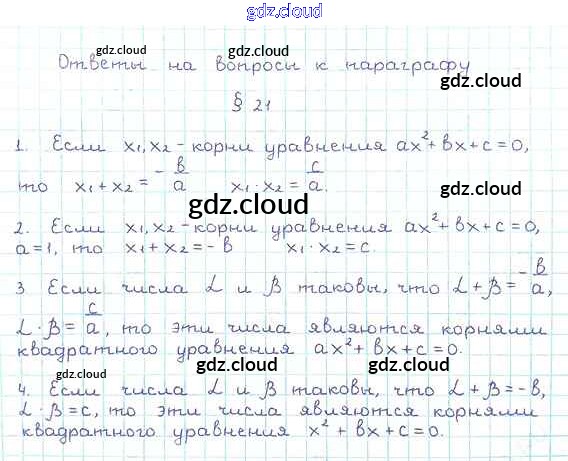 gdz.cloud
gdz.cloud gdz.cloud
Ответы на вопросы к параграфу
gdz.cloud
§ 21
1. Если x₁, x₂ - корни уравнения ax² + bx + c = 0,
то x₁ + x₂ = -b/a x₁ · x₂ = c/a.
gdz.cloud gdz.cloud
gdz.cloud
2. Если x₁, x₂ - корни уравнения ax² + bx + c = 0,
a = 1, то x₁ + x₂ = - b x₁ · x₂ = c.
gdz.cloud
3 Если числа α и β таковы, что α + β = -b/a,
α · β = c/a, то эти числа являются корнями
квадратного уравнения ax² + bx + c = 0.
gdz.cloud gdz.cloud
4. Если числа α и β таковы, что α + β = - b,
α · β = c, то эти числа являются корнями
квадратного уравнения x² + bx + c = 0.
gdz.cloud gdz.cloud